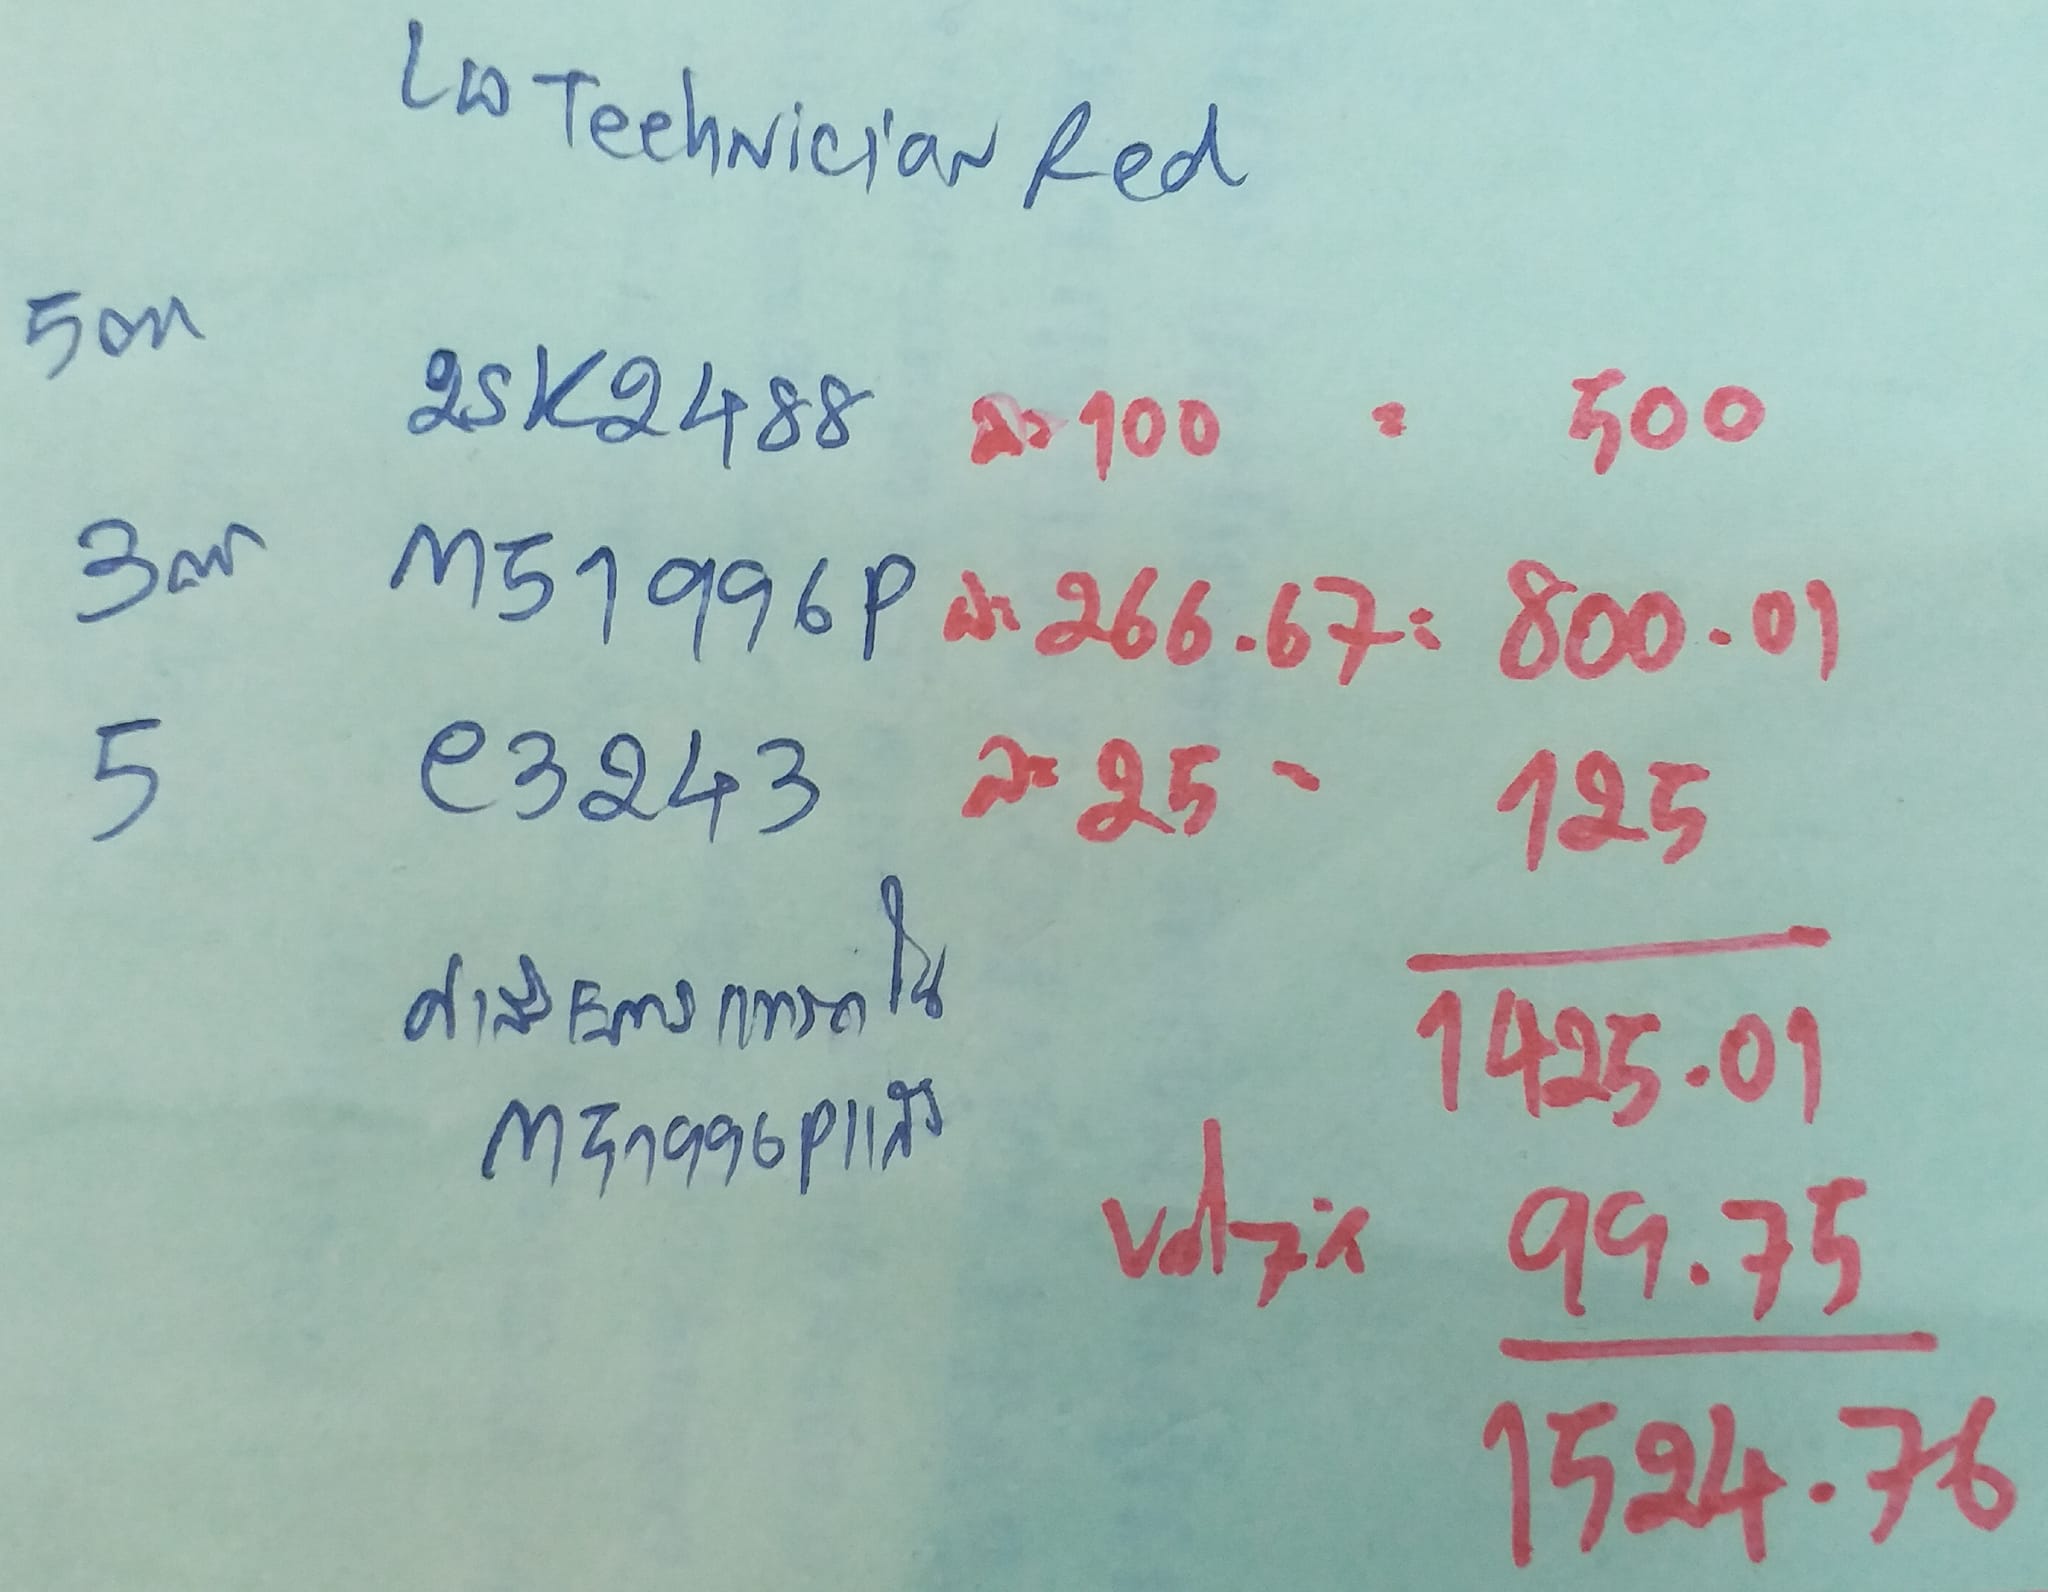 Technician Red
5 ตัว
2SK2488 ละ 100 = 500
3 ตัว M51996P ละ 266.67 = 800.01
5 C3243 ละ 25 - 125
1425.01
M51996P แล้ว
Vat 7% 99.75
1524.76